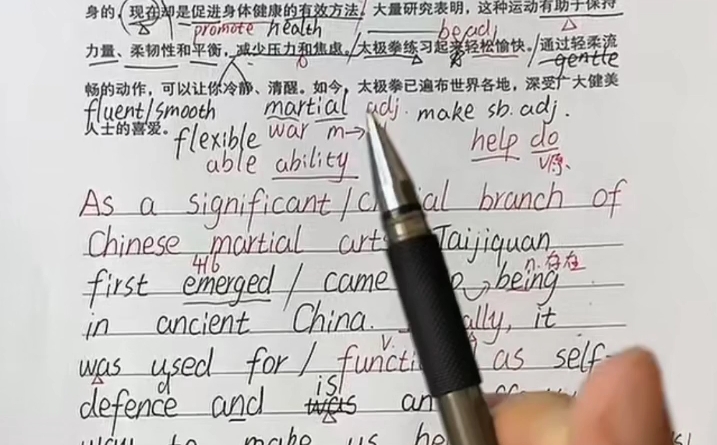 身的，现在却是促进身体健康的有效方法。大量研究表明，这种运动有助于保持
promote health be adj
力量、柔韧性和平衡，减少压力和焦虑。/太极拳练习起来轻松愉快。/通过轻柔流
gentle
畅的动作，可以让你冷静、清醒。如今，太极拳已遍布世界各地，深受广大健美
fluent/smooth martial adj. make sb. adj.
人士的喜爱。
flexible war m→ help do
able ability
As a significant / branch of
Chinese martial arts Taijiquan
4/6 n.存在
first emerged / came being
in ancient China. it
v.
was used for / as self-
d is
defence and was an
way to make us